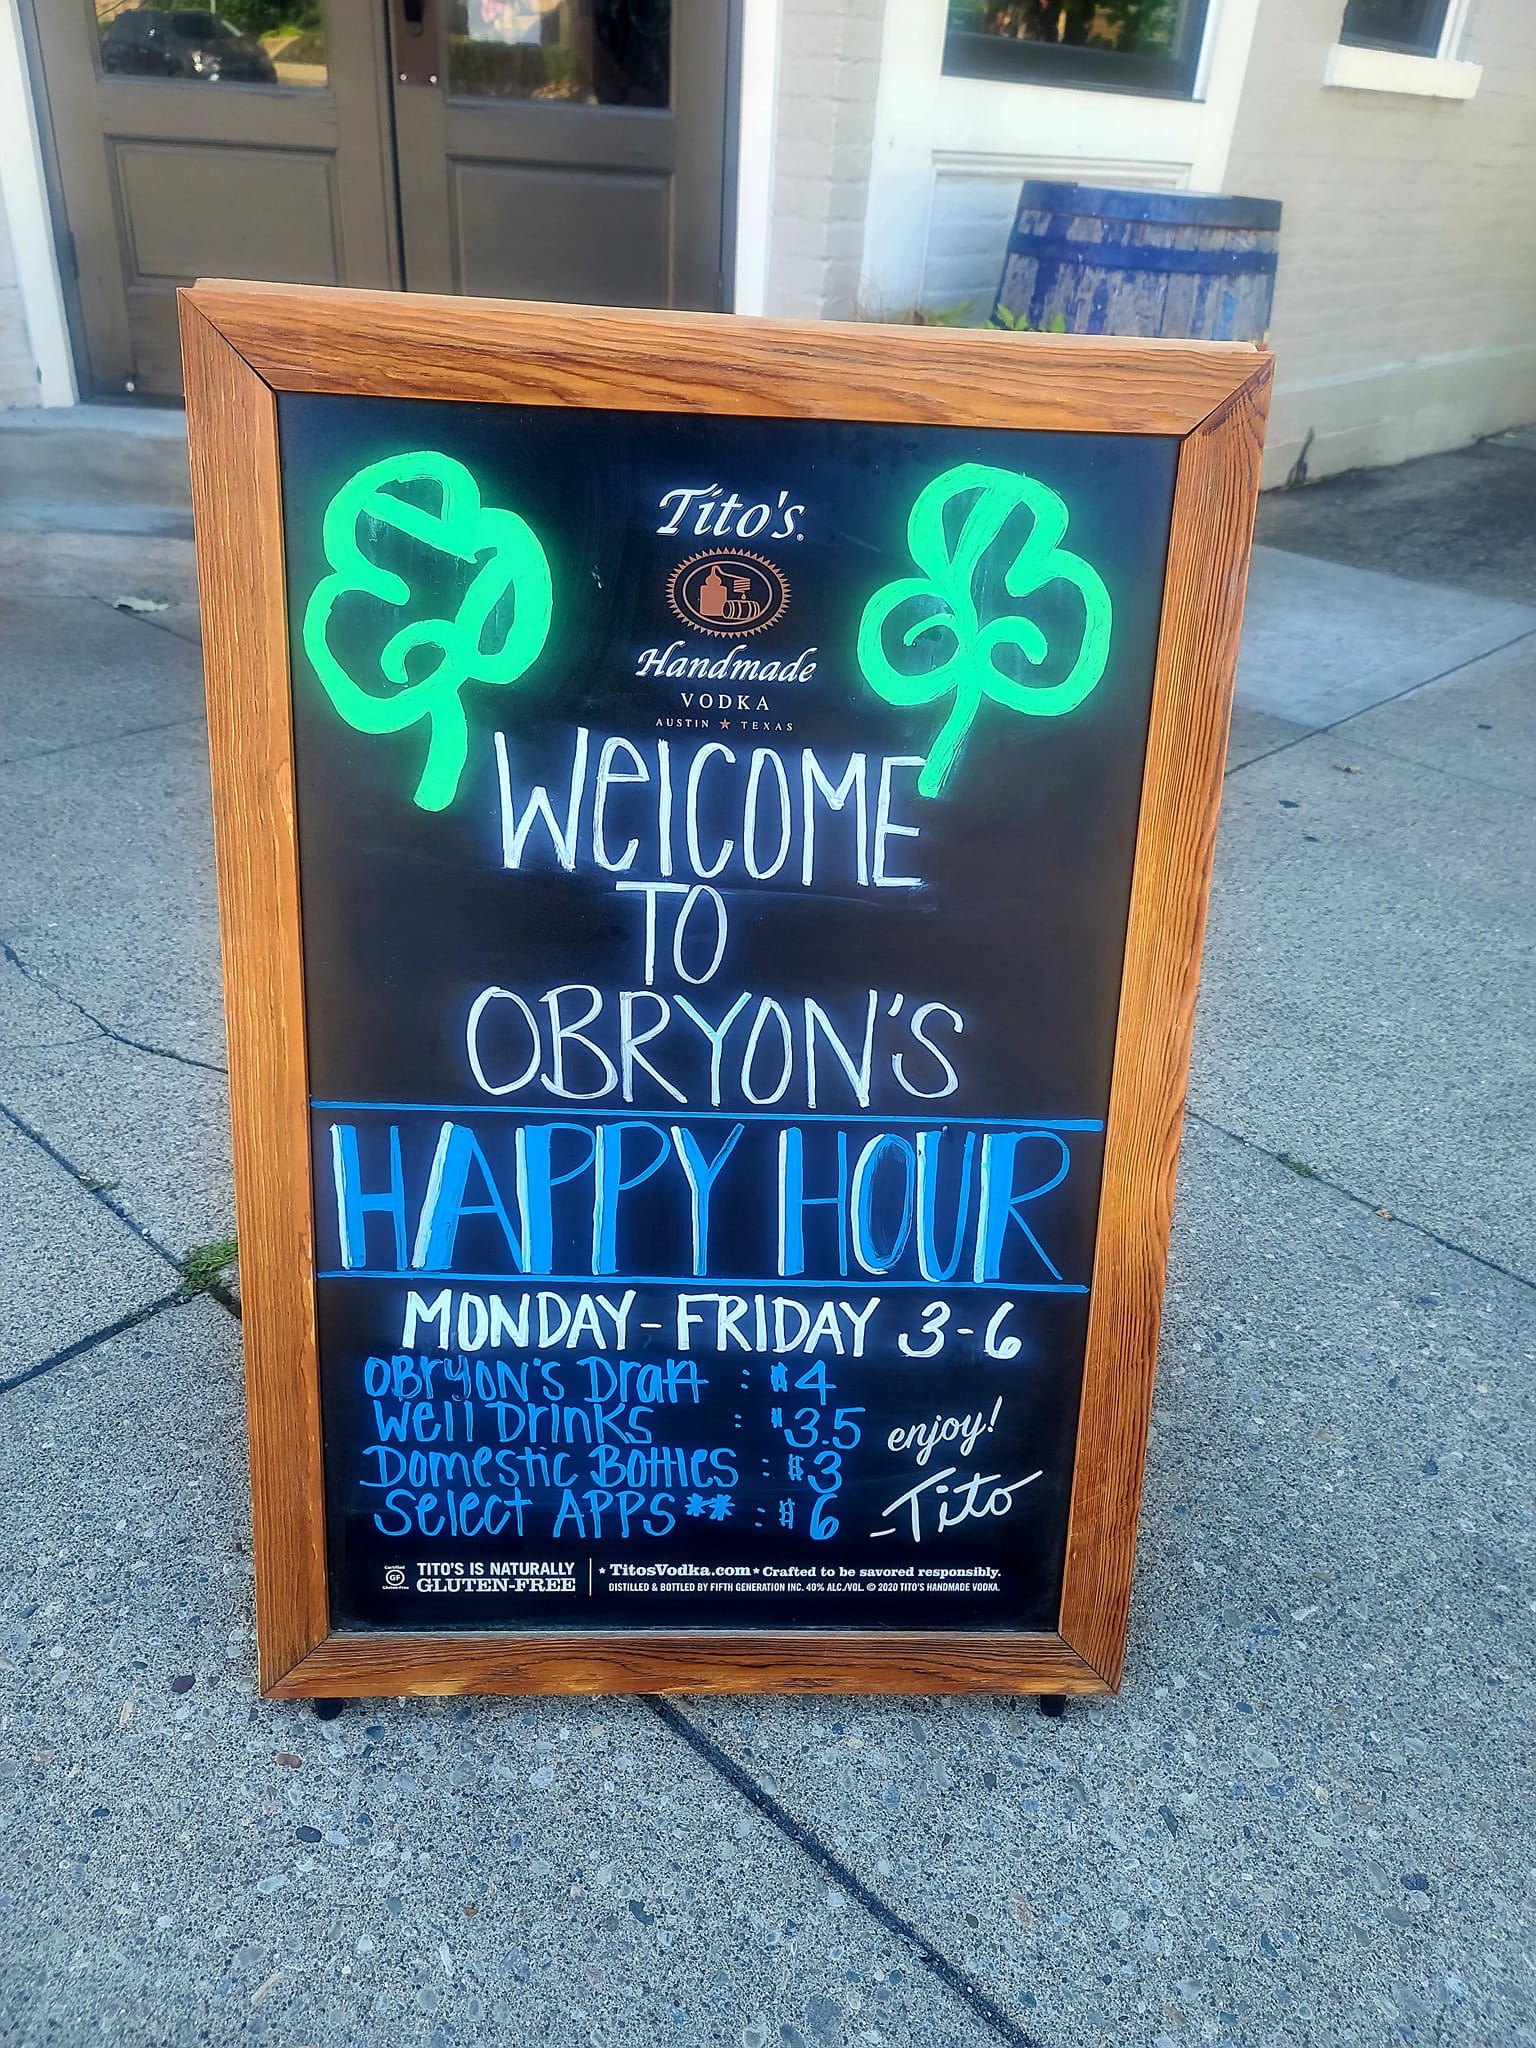 Tito's
Handmade
VODKA
AUSTIN ★ TEXAS
WelCOME
TO
OBRYON'S
HAPPY HOUR
MONDAY-FRIDAY 3-6
OBryON'S Draft : $4
Well Drinks : $3.5
enjoy!
Domestic Bottles : $3
Select APPS** : $6
-Tito
Certified
GF
Gluten-Free
TITO'S IS NATURALLY
GLUTEN-FREE
★ TitosVodka.com ★ Crafted to be savored responsibly.
DISTILLED & BOTTLED BY FIFTH GENERATION INC. 40% ALC./VOL. © 2020 TITO'S HANDMADE VODKA.